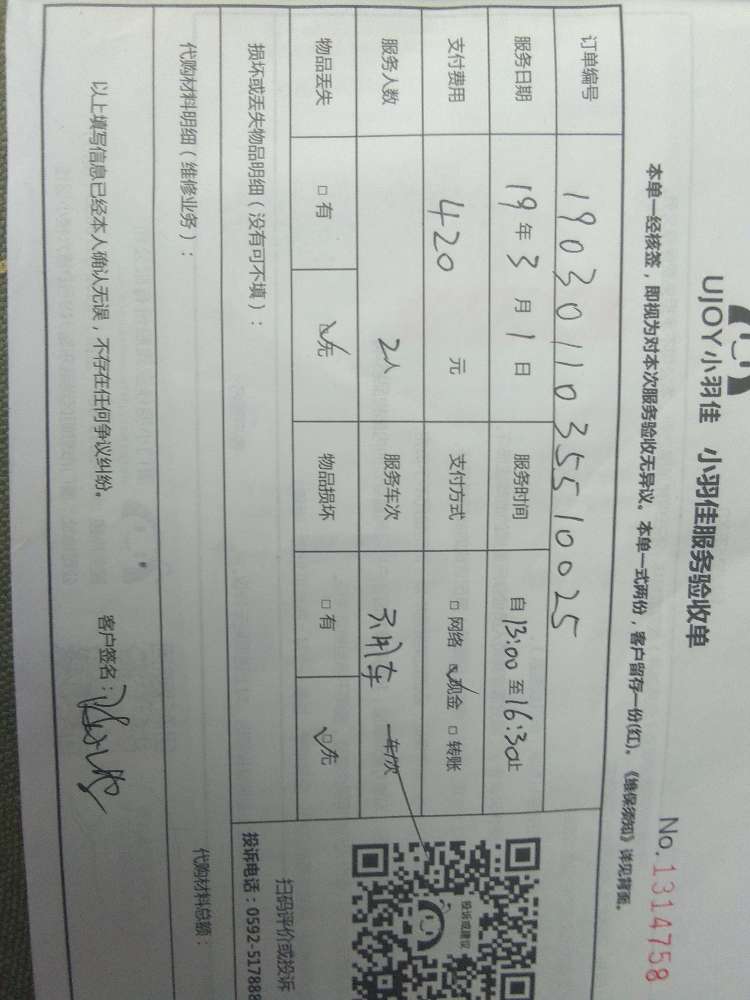 UJOY小羽佳 小羽佳服务验收单
No.1314758
本单一经核签，即视为对本次服务验收无异议。本单一式两份，客户留存一份(红)。《维保须知》详见背面。
订单编号 19030110355510025
服务日期 19年3月1日 服务时间 自13:00至16:30止
支付费用 420 元 支付方式 □网络 ☑现金 □转账
服务人数 2人 服务车次 不用车 车/次
物品丢失 □有 ☑无 物品损坏 □有 ☑无
损坏或丢失物品明细（没有可不填）：
投诉或建议
扫码评价或投诉
投诉电话：0592-517888
代购材料明细（维修业务）： 代购材料总额：
以上填写信息已经本人确认无误，不存在任何争议纠纷。 客户签名：